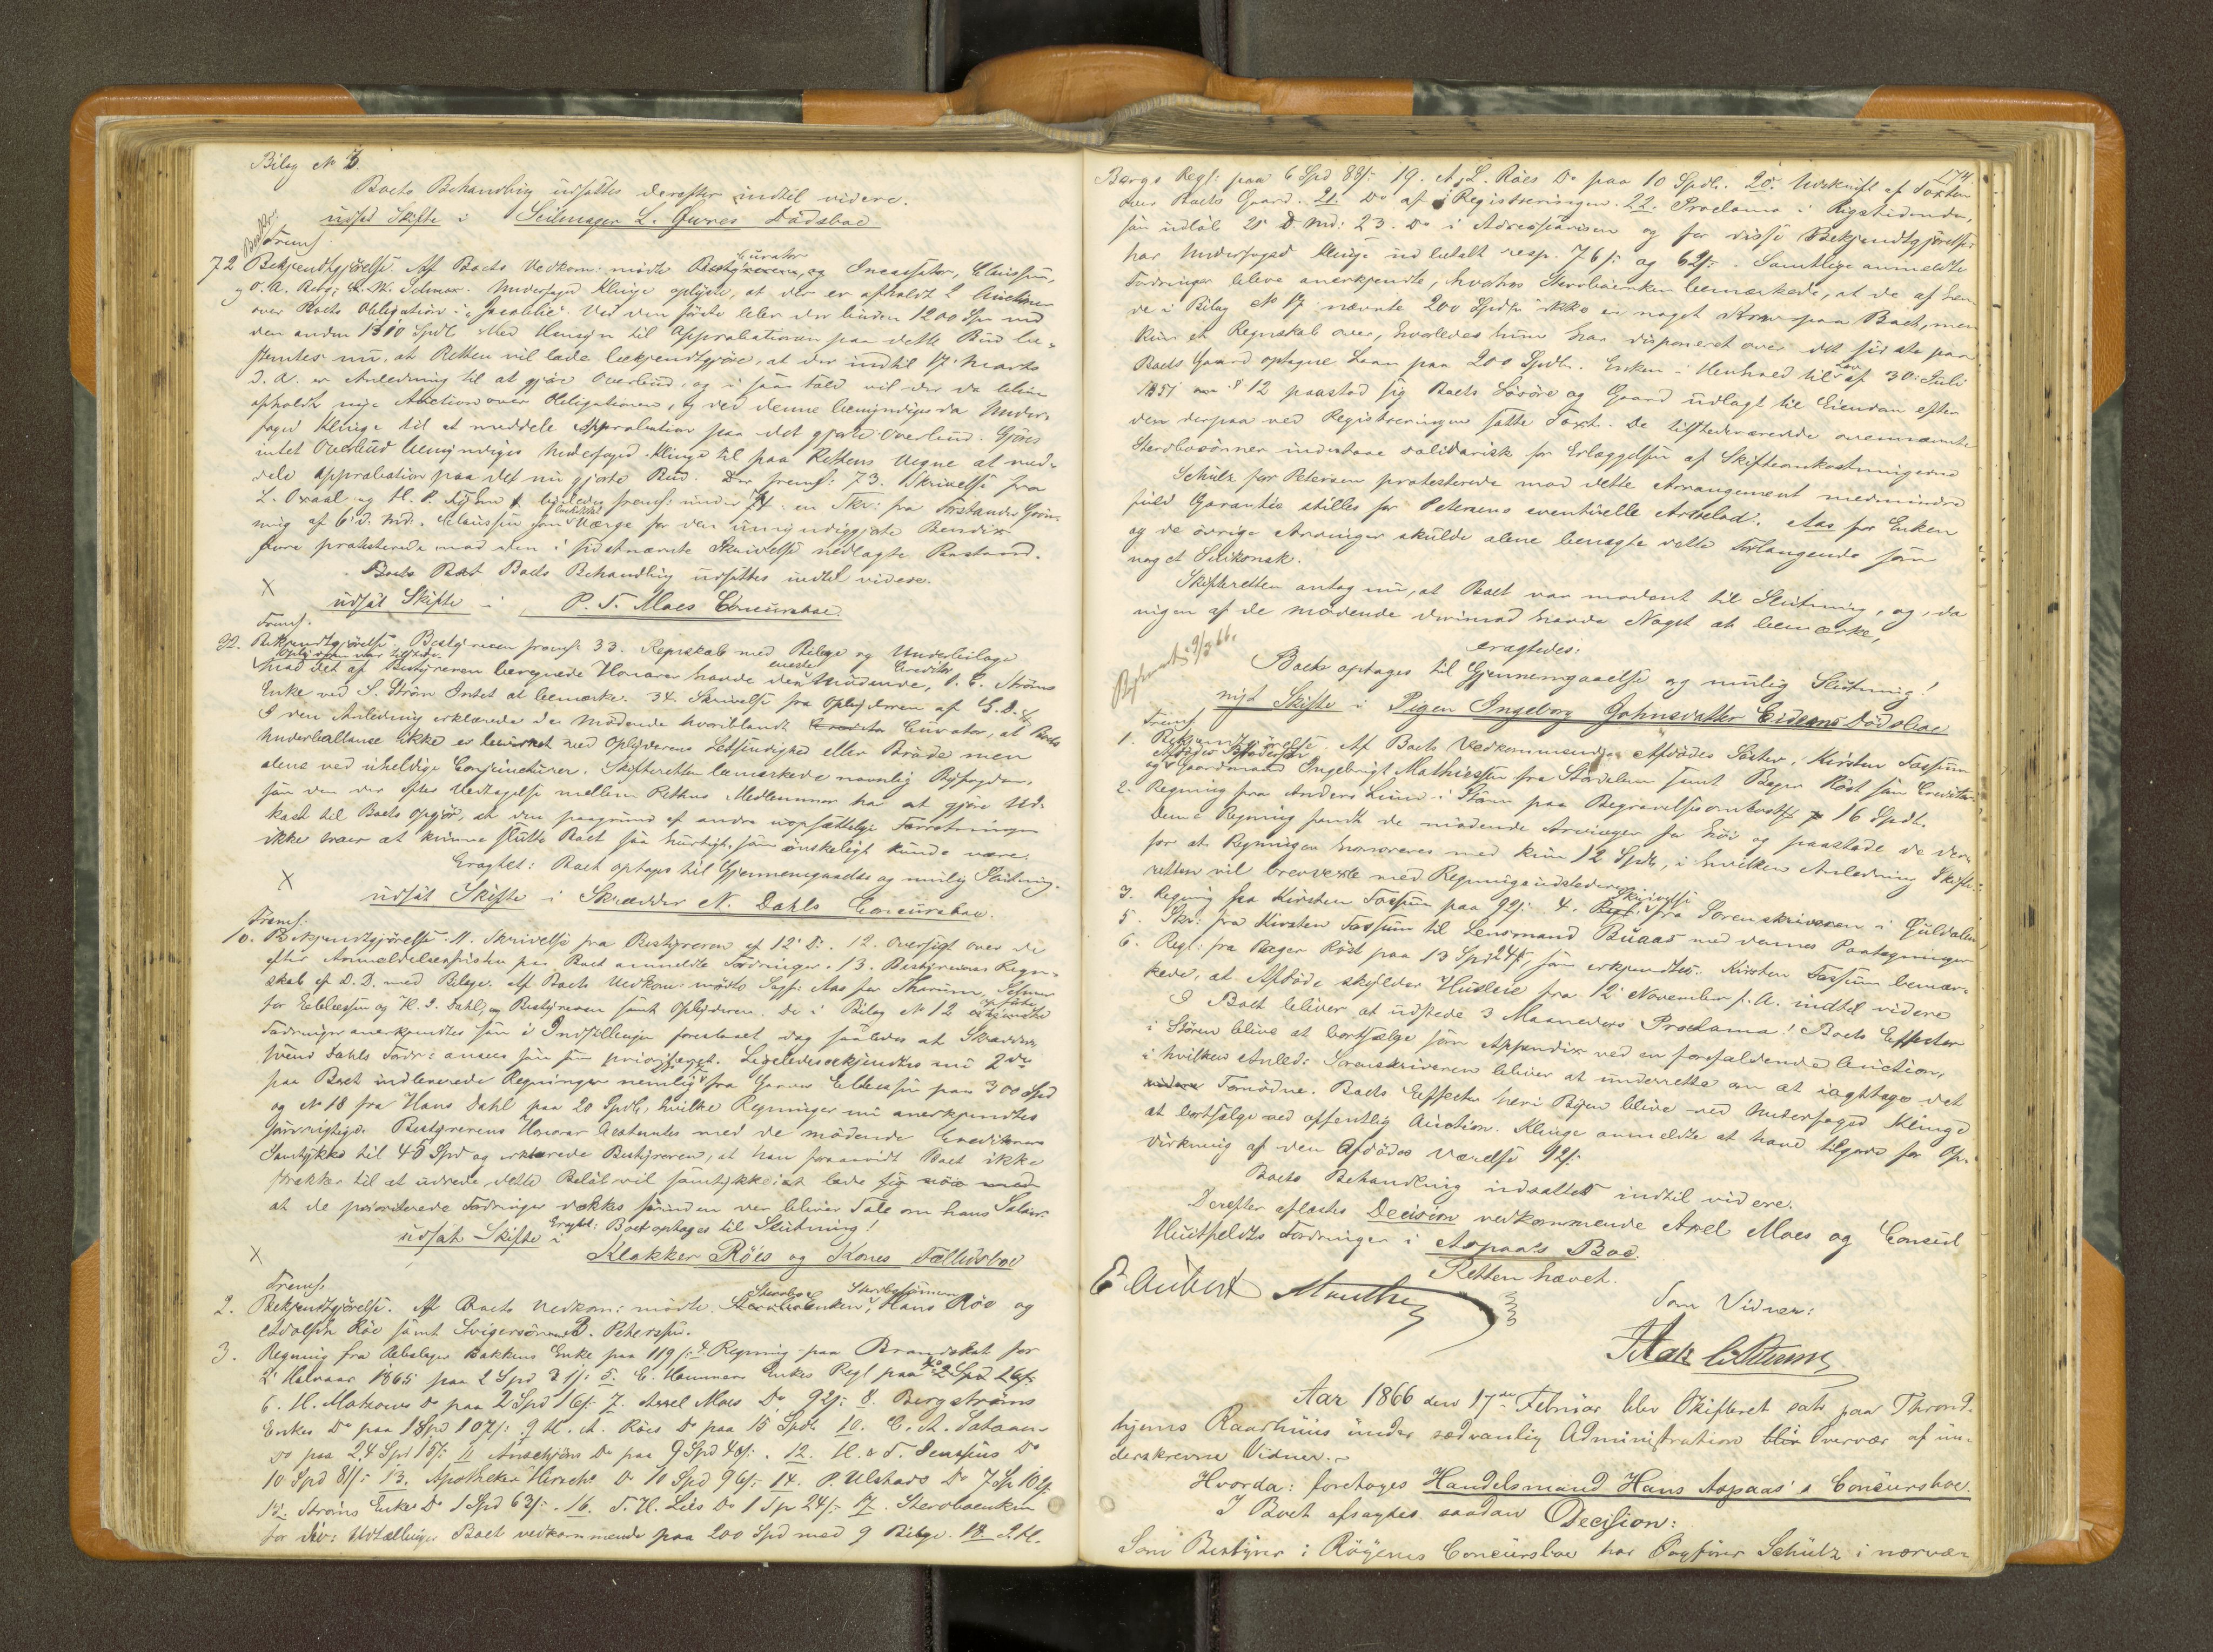 Bilag No 3.
Boets Behandling udsattes derefter indtil videre.
udsat Skifte i Seilmager L. Gures Dødsboe
Fremf.
72 Bekjendtgjørelse. Af Boets Vedkom: mødte Curator og Incassator, Claussen,
over Boets Obligation i "Jacobine". Ved den første blev der buden 1200 Spd ved
den anden 1310 Spdl. Med Hensyn til Approbationen paa dette Bud be-
stemtes nu, at Retten vil lade bekjendtgjøre, at der indtil 17 Marts
d. A. er Anledning til at gjøre Overbud, og i saa Fald vil der da blive
afholdt nye Auction over Obligationen, og ved denne bemyndiges da Under-
foged Klinge til at meddele Approbation paa det gjorte Overbud. Gjøres
intet Overbud bemyndiges Underfoged Klinge til paa Rettens Vegne at med-
dele Approbation paa det nu gjorte Bud. Der fremf: 73. Skrivelse fra
L. Oxaal og
ning af 6 d. Md. Claussen som Værge for den umyndiggjorte Bendix
Gure protesterede mod den i sidstnævnte Skrivelse nedlagte Paastand.
Boets Behandling udsattes indtil videre.
X
udsat Skifte i P. T. Moes Concursboe.
Fremf.
32. Bekjendtgjørelse. Bestyreren fremf 33. Regnskab med Bilage og Underbilage
Opbyderen var tilstede.
Mod det af Bestyreren beregnede Honorar havde den eneste mødende Creditor,
Enke ved S. Strøm Intet at bemærke. 34. Skrivelse fra Opbyderen af G. D.
I den Anledning erklærede de Mødende hvoriblandt Curator, at Boets
Underballance ikke er bevirket ved Opbyderens Letsindighed eller Brøde men
alene ved uheldige Conjuncturer. Skifteretten bemærkede navnlig Byfogden,
som den der efter Vedtagelse mellem Rettens Medlemmer har at gjøre Ud-
kast til Boets Opgjør, at den paagrund af andre uopsættelige Forretninger
ikke troer at kunne slutte Boet saa hurtigt, som ønskeligt kunde være.
Eragtet: Boet optages til Gjennemgaaelse og mulig Slutning.
X
udsat Skifte i Skrædder N. Dahls Concursboe.
Fremf.
10. Bekjendtgjørelse. 11. Skrivelse fra Bestyreren af 12 D: 12. Oversigt over de
efter Anmeldelsesfristen paa Boet anmeldte Fordringer. 13. Bestyrerens Regn-
skab af D. D. med Bilage. Af Boets Vedkom: mødte Sagf: Aas for Tharum, Selmer
for Ebbesen og H. J. Dahl, og Bestyreren samt Opbyderen. De i Bilag No 12 opførte
Fordringer anerkjendtes som i Indstillingen foreslaaet dog saaledes at Skrædder
Svend Dahls Fordr: ansees som prioriteret. Ligeledes erkjendtes nu 2de
paa Boet indleverede Regninger nemlig fra Garver Ebbesen paa 300 Spd
og No 18 fra Hans Dahl paa 20 Spdl, hvilke Regninger nu anerkjendtes
som rigtige. Bestyrerens Honorar bestemtes med de mødende Creditorers
Samtykke til 45 Spd og erklærede Bestyreren, at han forsaavidt Boet ikke
strækker til at udrede dette Beløb vil samtykke i at lade sig nøie med
at de prioriterede Fordringer dækkes førinden der bliver Tale om hans Salair
Eragtet: Boet optages til Slutning!
udsat Skifte i
X
Klokker Röes og Kones Fællesboe
Fremf.
2. Bekjendtgjørelse. Af Boets Vedkom: mødte Sterboenken, Sterbosønnerne Hans Röe og
Adolph Röe samt Svigersønnen B. Petersen.
3. Regning fra Rebslager Bakkens Enke paa 119 s: 4 Regning paa Brandskat for
2 Halvaar 1865 paa 2 Spd 21 s: 5. E. Hammers Enkes Regl paa 2 Spd 26 s:
6. H. Matzows Do paa 2 Spd 16 s: 7. Axel Moes Do 92 s: 8. Bergstrøms
Enkes Do paa 1 Spd 107 s: 9 H. A. Röes Do paa 15 Spdl. 10. C. A.
Do paa 24 Spd 15 s: 11 Do paa 9 Spd 48 s: 12. H. & F. Do
10 Spd 81 s: 13. Apotheker Hirsch Do 10 Spd 96 s: 14. P. Ulstads Do 7 Sp 102 s
15. Strøms Enkes Do 1 Spd 63 s: 16. F. H. Lies Do 1 Spr 24 s: 17. Sterboenken
for div: Udtællinger Boet vedkommende paa 200 Spd med 9 Bilage. 18.
174
Bergs Regl: paa 6 Spd 88 s: 19. A. L. Röes Do paa 10 Spdl. 20. Udskrift af Taxten
over Boets Gaard. 21. Do af Registreringen. 22. Proclama i Rigstidende,
som udløb 25 D. Md: 23. Do i Adresseavisen og for disse Bekjendtgjørelser
har Underfoged Klinge udbetalt resp. 76 s: og 62 s: Samtlige anmeldte
Fordringer bleve anerkjendte, hvorhos Sterboenken bemærkede, at de af hen-
de i Bilag No 17 nævnte 200 Spdlr ikke er noget Krav paa Boet, men
kun et Regnskab over, hvorledes hun har disponeret over det sidste paa
Boets Gaard optagne Laan paa 200 Spdlr. Enken i Henhold til Lov af 30 Juli
1851 § 12 paastod sig Boets Løsøre og Gaard udlagt til Eiendom efter
den derpaa ved Registreringen satte Taxt. De tilstedeværende ovennævnte
Sterbosønner indestaae solidarisk for Erlæggelsen af Skifteomkostningerne
Schulz for Petersen protesterede mod dette Arrangement medmindre
fuld Garantie stilles for Petersens eventuelle Arvelod. Aas for Enken
og de øvrige Arvinger skulde alene benægte dette Forlangende som
noget Sukonsk.
Skifteretten antog nu, at Boet var modent til Slutning, og, da
ingen af de mødende derimod havde Noget at bemærke,
eragtedes:
9/3 66.
Boet optages til Gjennemgaaelse og mulig Slutning!
nyt Skifte i Pigen Ingeborg Johnsdatter Eidsens Dødsboe
Fremf.
1. Bekjendtgjørelse. Af Boets Vedkommende Afdødes Søster, Kirsten Fossum
og Gaardmand Ingebrigt Mathiesen fra Stordalen samt Bager Röst som Creditor
2. Regning fra Anders Lund i Støren paa Begravelsesomkostn 16 Spdl.
Denne Regning fandt de mødende Arvinger for høi og paastode de der-
for at Regningen honoreres med kun 12 Spdl, i hvilken Anledning Skifte-
retten vil brevvexle med Regningsudstederen.
3. Regning fra Kirsten Fossum paa 92 s: 4. Skrivelse fra Sorenskriveren i Guldalen
5. Skr: fra Kirsten Fossum til Lensmand Buaas med dennes Paategninger
6. Regl: fra Bager Röst paa 13 Spd 24 s, som erkjendtes. Kirsten Fossum bemær-
kede, at Afdøde skylder Husleie fra 12 November f. A. indtil videre
I Boet bliver at udstede 3 Maaneders Proclama! Boets Effecter
i Støren blive at bortsælge som Appendix ved en forefaldende Auction,
i hvilken Anled: Sorenskriveren bliver at underrette om at iagttage det
Fornødne. Boets Effecter her i Byen blive ved Underfoged Klinge
at bortsælge ved offentlig Auction. Klinge anmeldte at have tilgode for Op-
virkning af den Afdødes Værelse 92 s:
Boets Behandling udsattes indtil videre.
Derefter aflæstes Decision vedkommende Axel Moes og Consul
Huitfeldts Fordringer i Aspaas Boe.
Retten hævet.
E Aubert
Som Vidner:
Aar 1866 den 17de Februar blev Skifteret sat paa Thrond-
hjems Raadhuus under sædvanlig Administration Overvær af un-
derskrevne Vidner.
Hvorda: foretoges Handelsmand Hans Aspaas's Concursboe.
I Boet afsagdes saadan Decision:
Som Bestyrer i Röyens Concursboe har Sagfører Schulz i nærvæ-